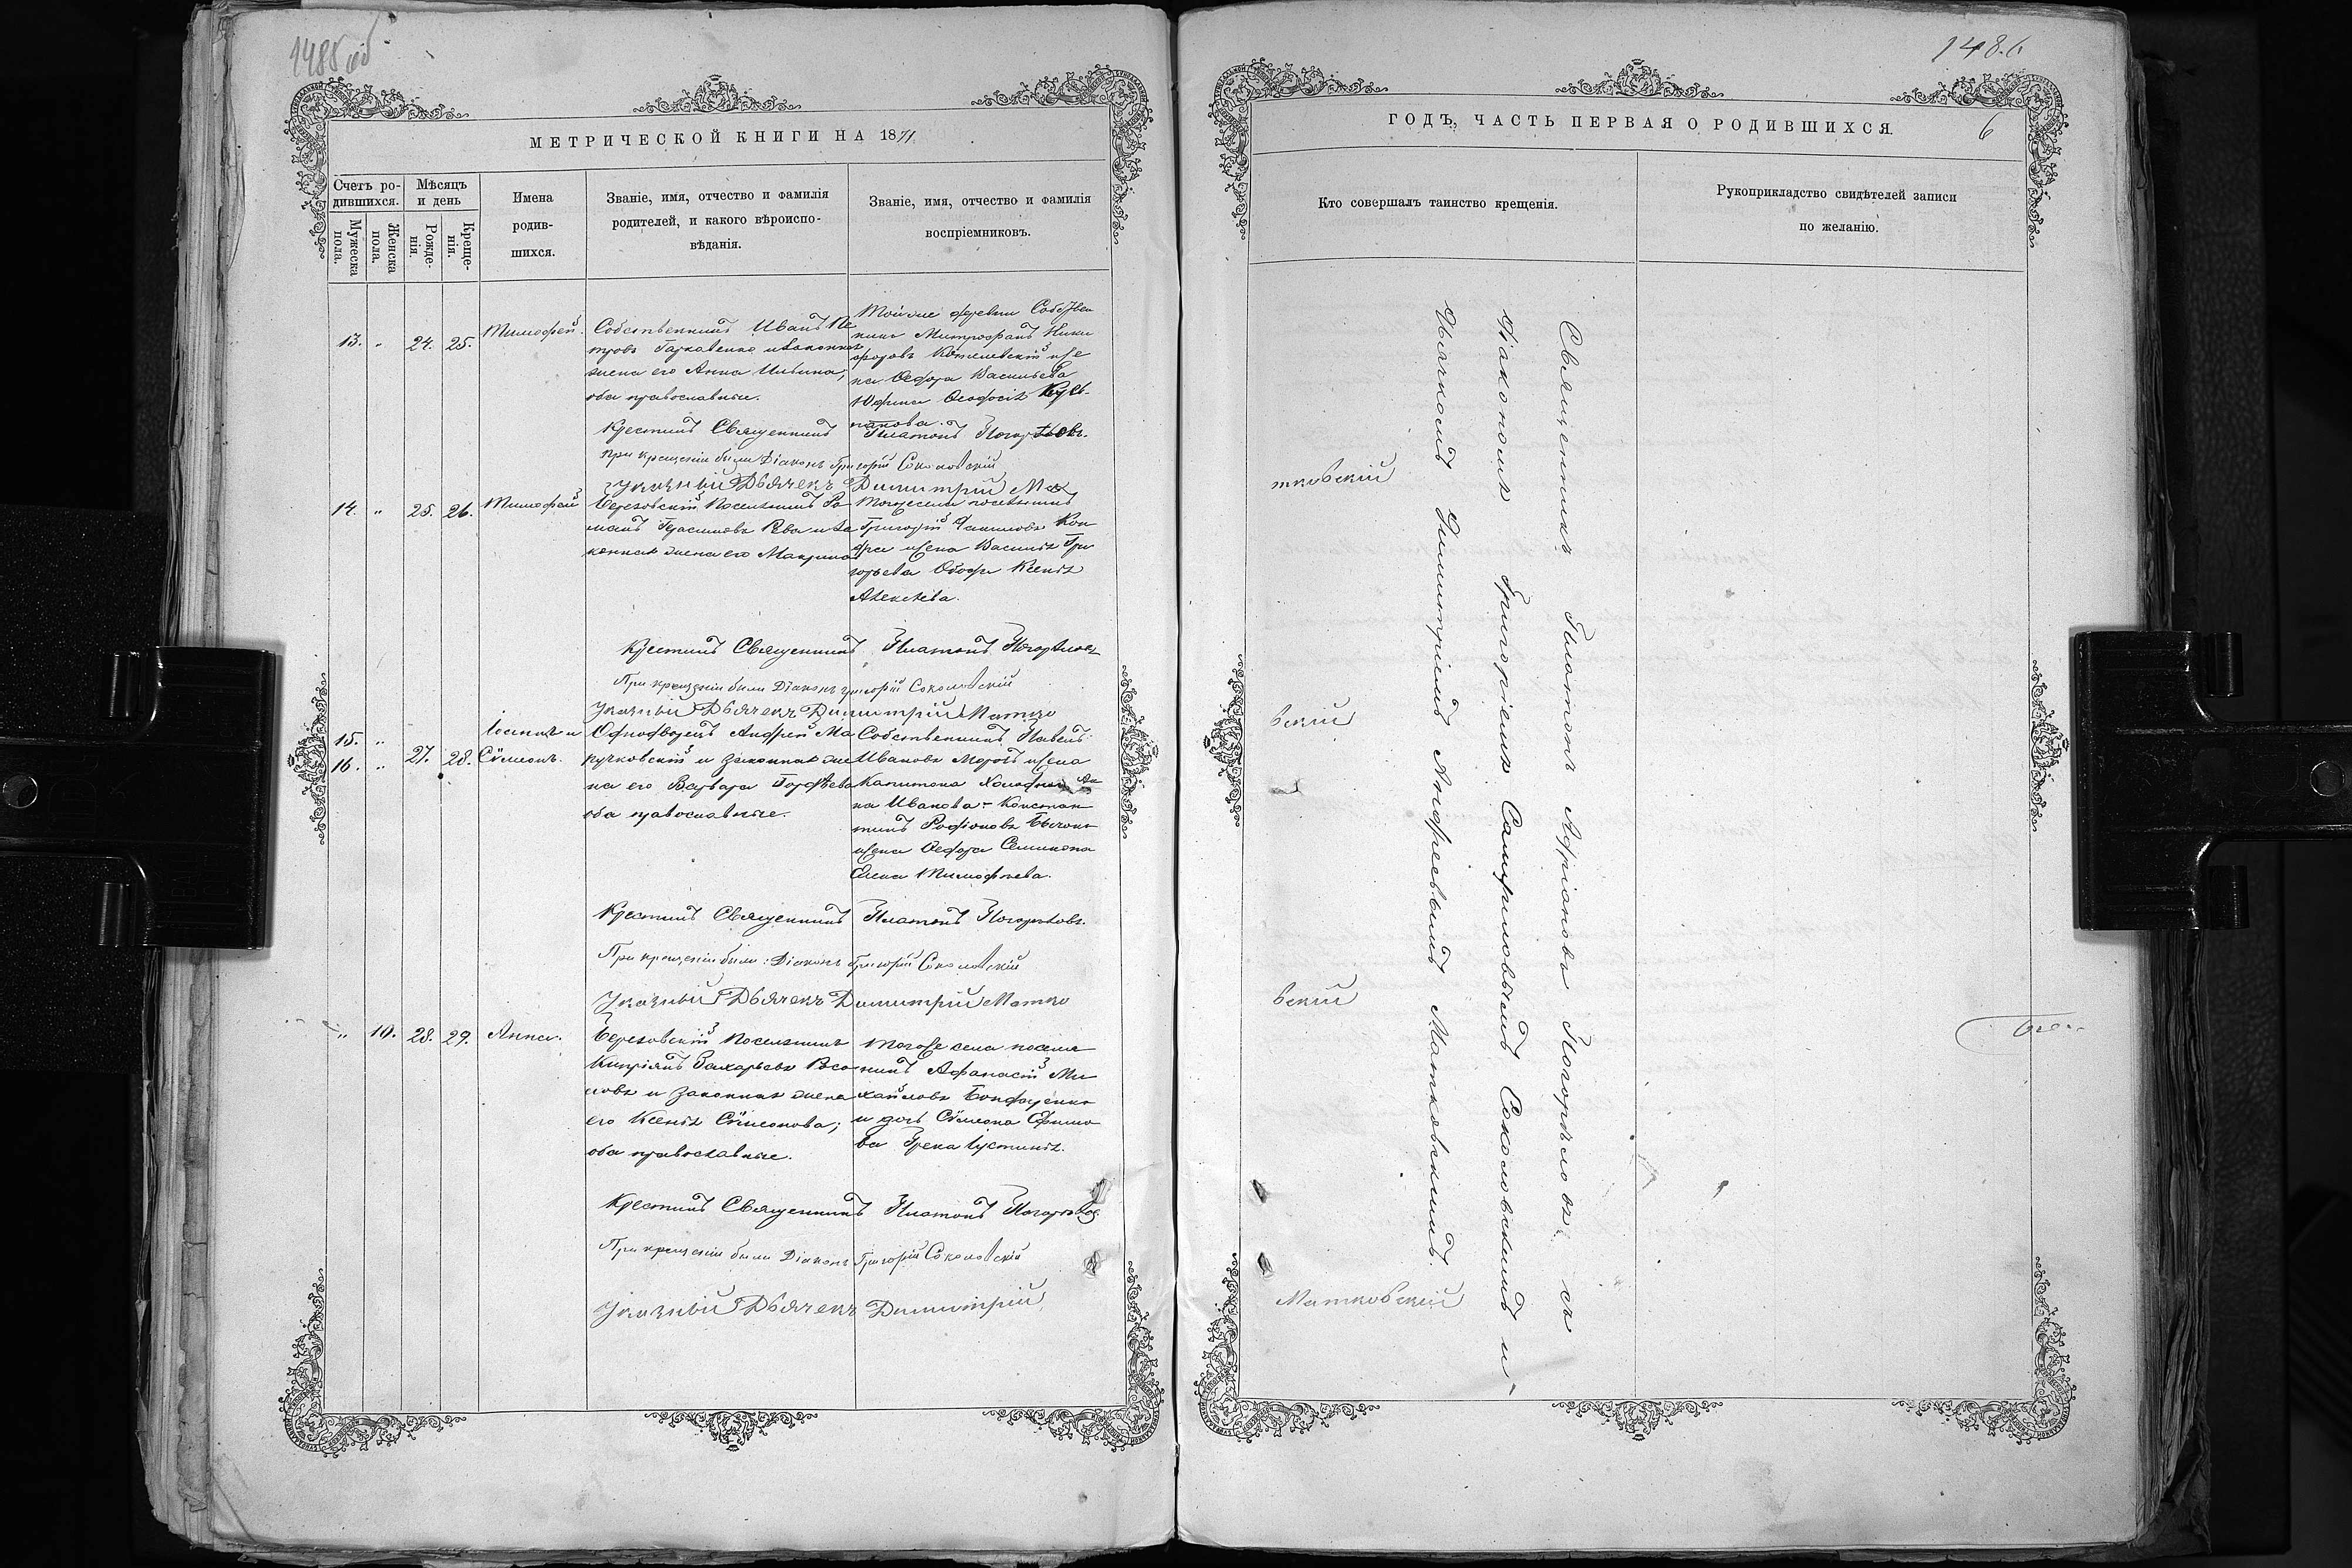 1485 об
МЕТРИЧЕСКОЙ КНИГИ НА 1871
Счетъ ро-
дившихся.
Мѣсяцъ
и день
Мужеска
пола.
Женска
пола.
Рожде-
нія.
Креще-
нія.
Имена
родив-
шихся.
Званіе, имя, отчество и фамилія
родителей, и какого вѣроиспо-
вѣданія.
Званіе, имя, отчество и фамилія
воспріемниковъ.
13. " 24. 25. Тимофей.
Собственникъ Иванъ Пе
тровъ Гаркавенко и законная
жена его Анна Ильина;
оба православные.
Той же деревни Собствен
никъ Митрофанъ Ники
форовъ Котелевскій и же
на Ѳедора Васильева
Юдина Ѳеодосія
пакова.
Крестилъ Священникъ Платонъ Погорѣловъ.
При крещеніи были Діаконъ Григорій Соколовскій
Указный Дьячекъ Димитрій Ма
14. " 25. 26. Тимофей
Березовскій Поселянинъ Ро
манъ Герасимовъ Рева и за
конная жена его Макрина
Тогоже села поселянинъ
Григорій Даниловъ Кон
дра и жена Василія Гри
горьева Ксенія
Алексѣева.
Крестилъ Священникъ Платонъ Погорѣловъ
При крещеніи были Діаконъ Григорій Соколовскій
Указный Дьячекъ Димитрій Матко
15. "
16. " 27. 28. Іоаннъ и
Сѵмеонъ.
Однодворецъ Андрей Ма
кучковскій и законная же
на его Варвара Гордѣева
оба православные.
Собственникъ Павелъ
Ивановъ Морозъ и жена
Капитона Ан
на Ивановаꞏ- Констан
тинъ Родіоновъ Бычокъ
и жена Ѳедора Семикопа
Елена Тимофѣева.
Крестилъ Священникъ Платонъ Погорѣловъ.
При крещеніи были: Діаконъ Григорій Соколовскій
Указный Дьячекъ Димитрій Матко
" 10. 28. 29. Анна.
Березовскій Поселянинъ
Кипріянъ Захарьевъ Росо
ловъ и законная жена
его Ксенія Сѵмеонова;
оба православные.
Тогоже села поселя
нинъ Афанасій Ми
хайловъ Бондаренко
и дочь Сѵмеона Ефимо
ва Грека Іустинія.
Крестилъ Священникъ Платонъ Погорѣловъ
При крещеніи были Діаконъ Григорій Соколовскій
Указный Дьячекъ Димитрій
1486
ГОДЪ, ЧАСТЬ ПЕРВАЯ О РОДИВШИХСЯ.
6
Кто совершалъ таинство крещенія.
Рукоприкладство свидѣтелей записи
по желанію.
Священникъ Платонъ Адріановъ Погорѣловъ съ
Діакономъ Григоріемъ Самуиловымъ Соколовскимъ и
Дьячкомъ Димитріемъ Андреевымъ Матковскимъ.
тковскій
вскій
вскій
Матковскій